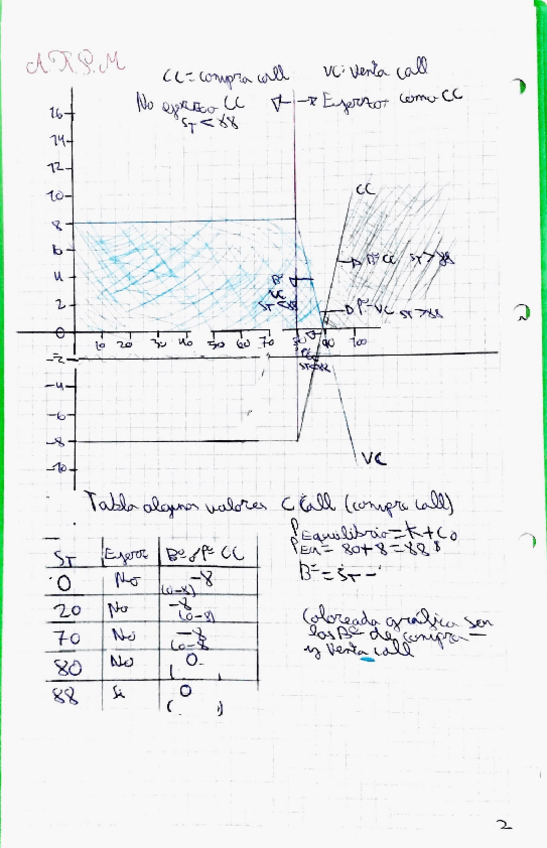 A.T.P.M
CC = compra call VC: Venta call
No ejerzo CC Ejerzo como CC
ST < 88
16
14
12
10
8
6
4
2
0
-2
-4
-6
-8
-10
10 20 30 40 50 60 70 80 90 100
CC
Bº CC ST > 88
Bº
VC
ST < 88
Pº VC ST > 88
VC
Tabla algunos valores C Call (compra call)
PEquilibrio = K + C0
80 + 8 = 88 $
Bº = ST -
ST Ejerz Bº / Pº CC
0 No -8
(0-8)
20 No -8
(0-8)
70 No -8
(0-8
80 No 0
( )
88 Si 0
( )
Coloreada gráfica son
las Bº de compra
y Venta call
2